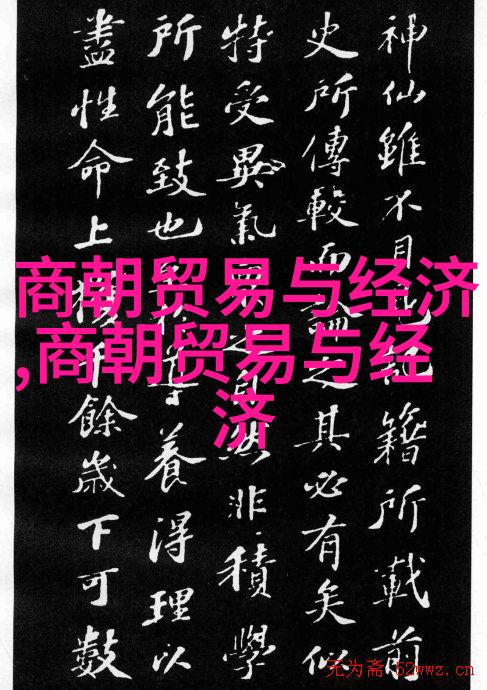 神仙雖不目籍所載前
史所傳較而論之其必有矣似
特受異氣之自然非積學
所能致也養得理以
盡性命上獲千餘歲下可數
商朝贸易与经济
,商朝贸易与经
济
无为斋·52wwz.cn